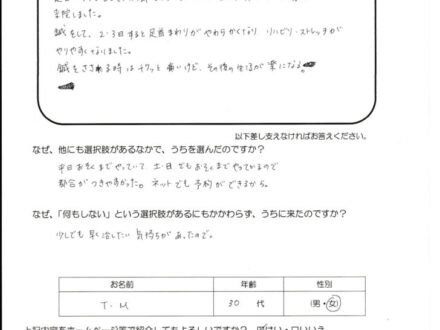 来院しました。
鍼をして、2・3日すると足首まわりがやわらかくなり リハビリ・ストレッチが
やりやすくなりました。
鍼をさされる時はチクッと痛いけど、その後の生活が楽になる。
以下差し支えなければお答えください。
なぜ、他にも選択肢があるなかで、うちを選んだのですか？
平日おそくまでやっていて、土・日でもおそくまでやっているので
都合がつきやすかった。ネットでも予約ができるから。
なぜ、「何もしない」という選択肢があるにもかかわらず、うちに来たのですか？
少しでも早く治したい気持ちがあったので。
お名前 年齢 性別
T・M 30 代 (男・女)
上記内容をホームページ等で紹介してもよろしいですか？ はい・口いいえ